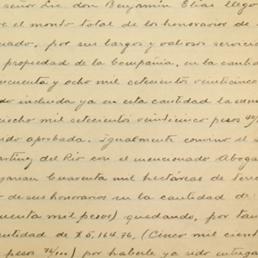 señor Lic. don Benjamín Elías llegó
ve el monto total de los honorarios de
uado, por sus largos y valiosos servicios
propiedad de la Compañía, en la cantid
cuenta y ocho mil setecientos veinticinco
do incluida ya en esta cantidad la suma
ciocho mil setecientos veinticinco pesos
sido aprobada. Igualmente convino el S
artínez del Río con el mencionado Abogad
garían Cuarenta mil hectáreas de terre
o de sus honorarios en la cantidad de
uenta mil pesos) quedando, por tan
antidad de $5,164.76, (Cinco mil cien
pesos 76/100) por haberle ya sido entrega